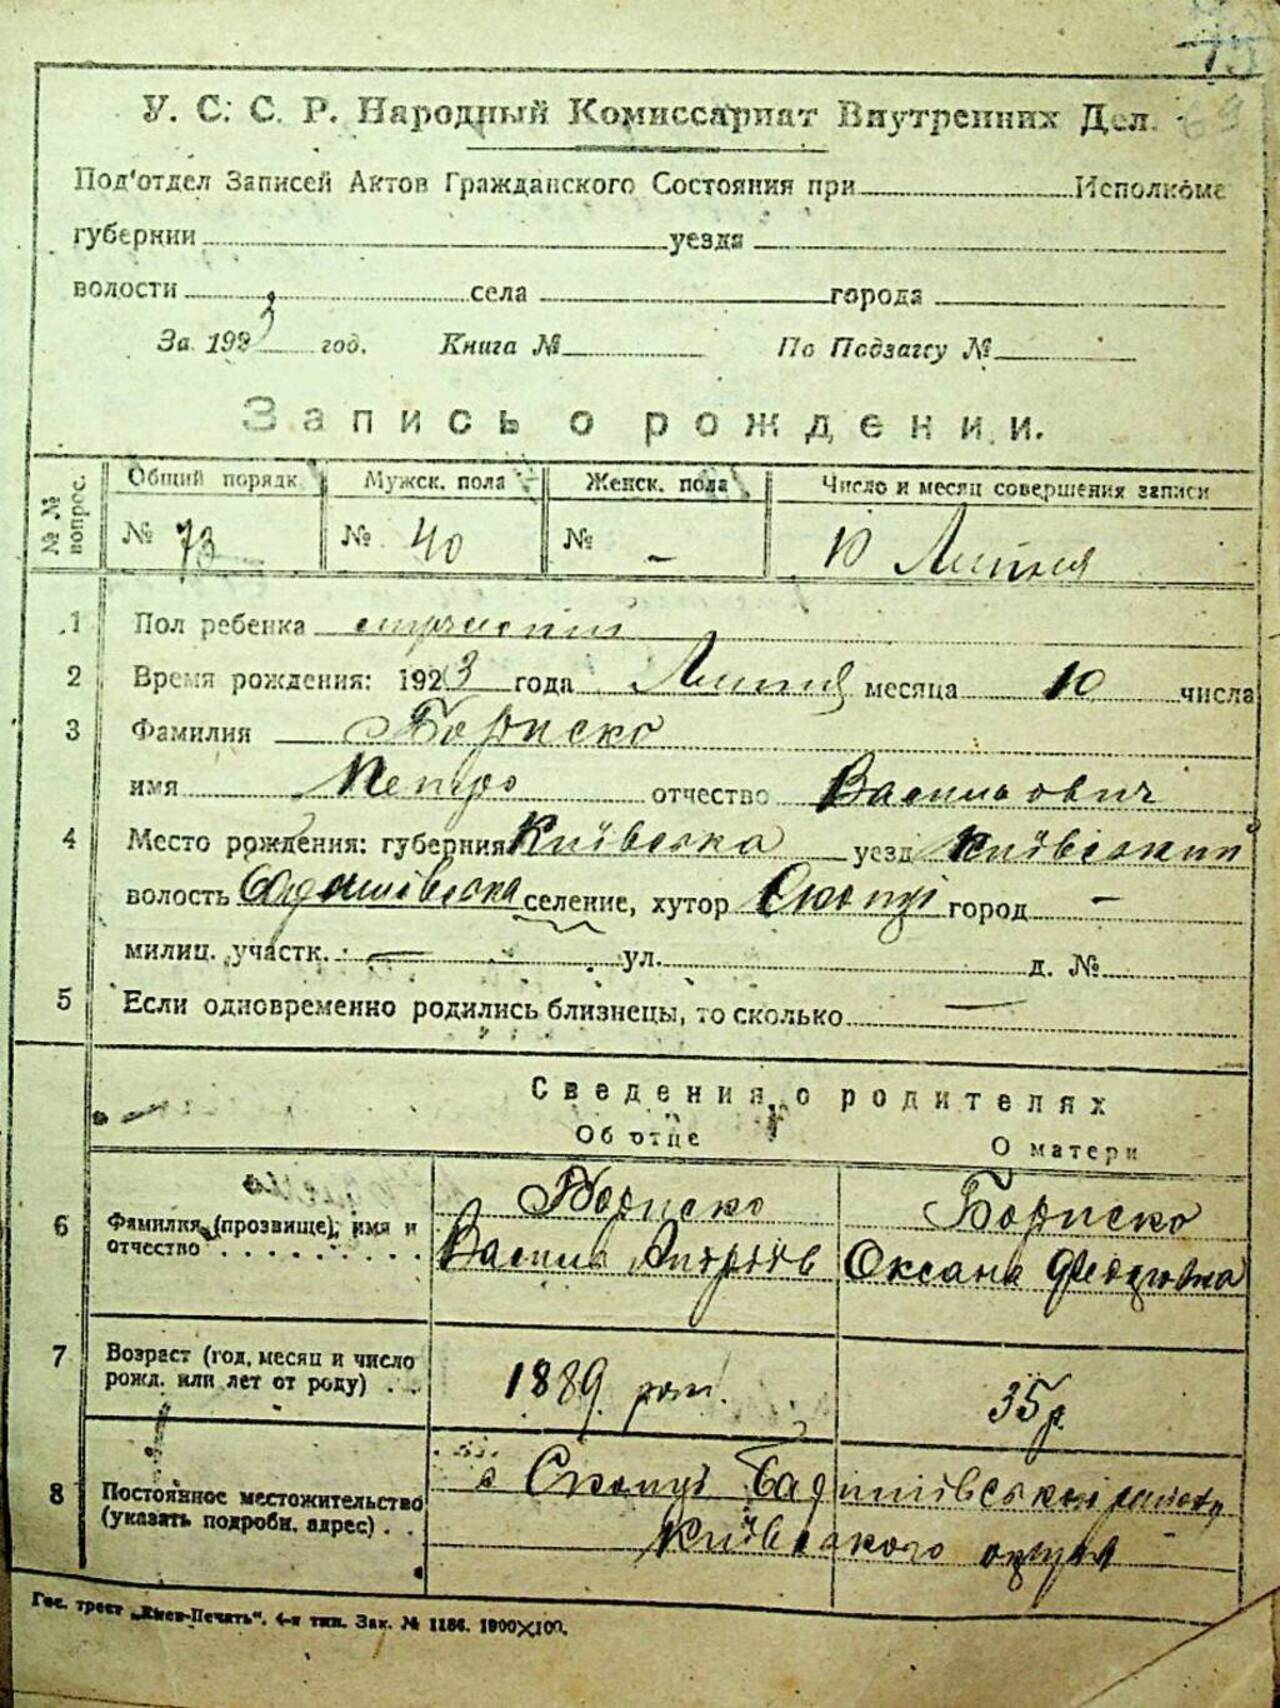 73
69
У. С. С. Р. Народный Комиссариат Внутренних Дел.
Под'отдел Записей Актов Гражданского Состояния при Исполкоме
губернии уезда
волости села города
За 1923 год. Книга № По Подзагсу №
Запись о рождении.
№№ вопрос. Общий порядк. Мужск. пола Женск. пола Число и месяц совершения записи
№ 73 № 40 № - 10 Липня
1 Пол ребенка
2 Время рождения: 1923 года Липня месяца 10 числа
3 Фамилия Бориско
имя Петро отчество Васильович
4 Место рождения: губерния Київська уезд Київський
волость селение, хутор Скопці город -
милиц. участк. — ул. д. №
5 Если одновременно родились близнецы, то сколько —
Сведения о родителях
Об отце О матери
6 Фамилия (прозвище), имя и отчество Бориско Бориско
Василь Оксана Федоровна
7 Возраст (год, месяц и число рожд. или лет от роду) 1889 рок. 35 р.
8 Постоянное местожительство (указать подробн. адрес) с Скопці
Київського округа
Гос. трест „Киев-Печать". 4-я тип. Зак. № 1186. 1900×100.